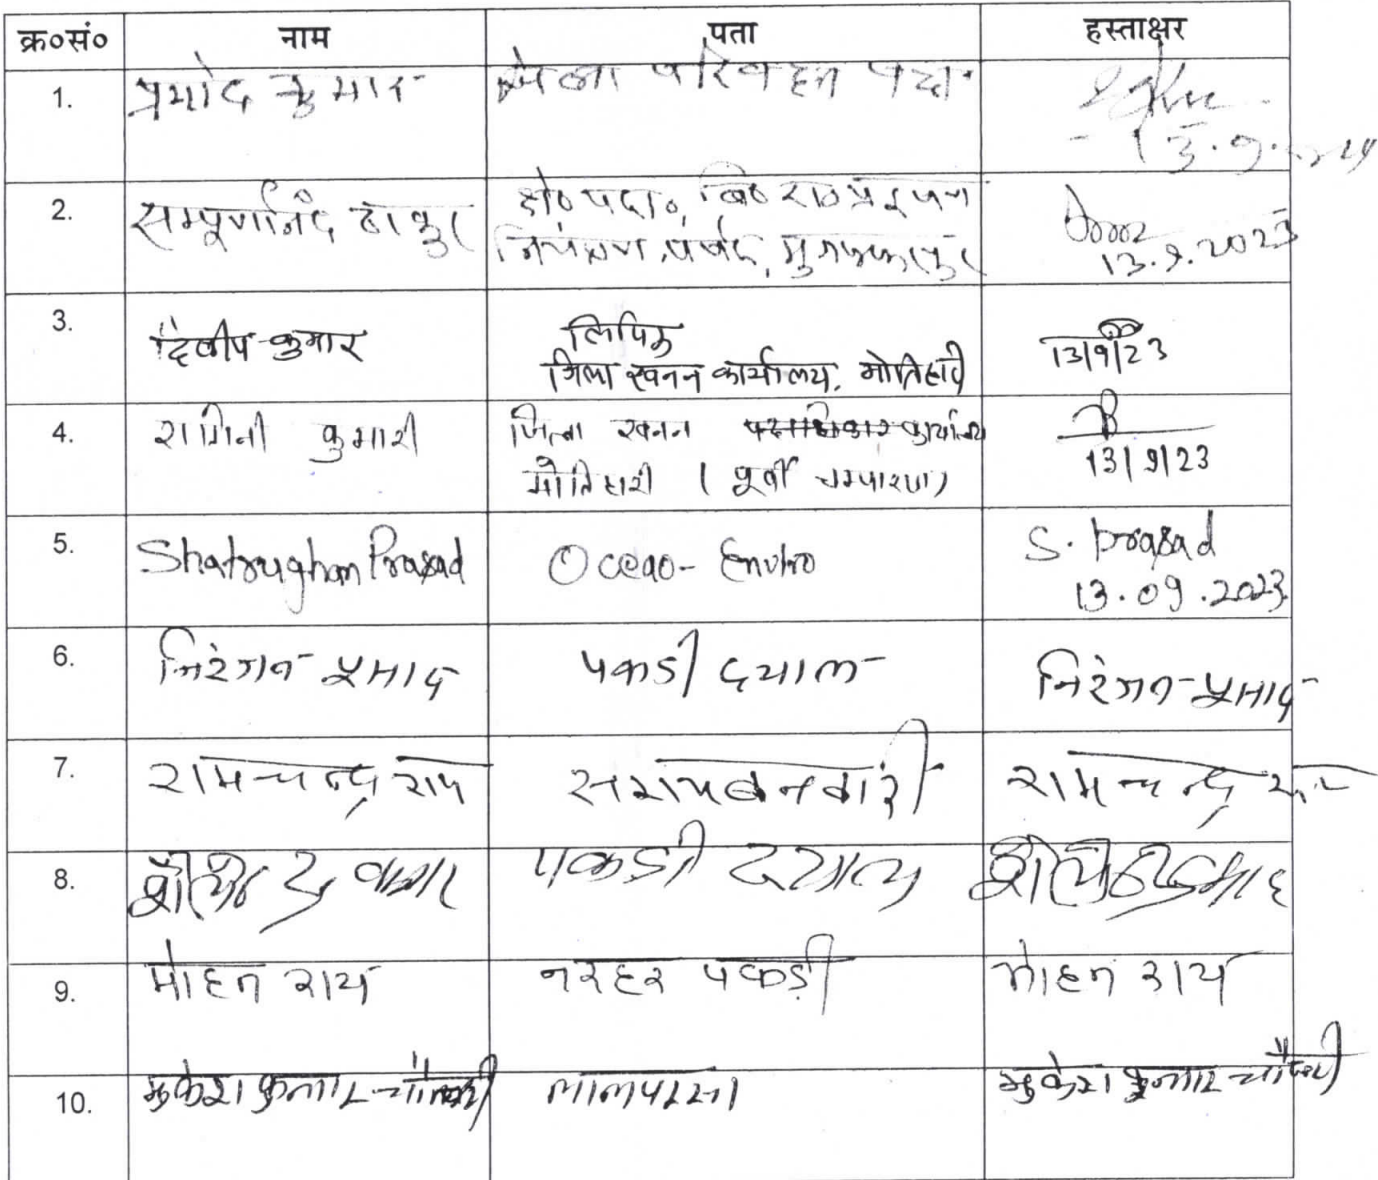 क्र०सं० नाम पता हस्ताक्षर
1. प्रमोद कुमार जिला परिवहन पदा०
13.9.
2. सम्पूर्णानंद ठाकुर क्षे० पदा०, बि० रा० प्रदूषण
नियंत्रण पर्षद, मुजफ्फरपुर
13.9.2023
3. दिलीप कुमार लिपिक
जिला खनन कार्यालय, मोतिहारी
13/9/23
4. रागिनी कुमारी जिला खनन कार्यालय
मोतिहारी (पूर्वी चम्पारण)
13/9/23
5. Shatrughan Prasad Ocean-Enviro S. Prasad
13.09.2023
6. निरंजन प्रसाद पकडी दयाल निरंजन प्रसाद
7. रामचन्द्र राय सरायबनवारी रामचन्द्र राय
8. पकडी दयाल
9. मोहन राय नरहर पकडी मोहन राय
10. मुकेश कुमार चौधरी लालपरसा मुकेश कुमार चौधरी